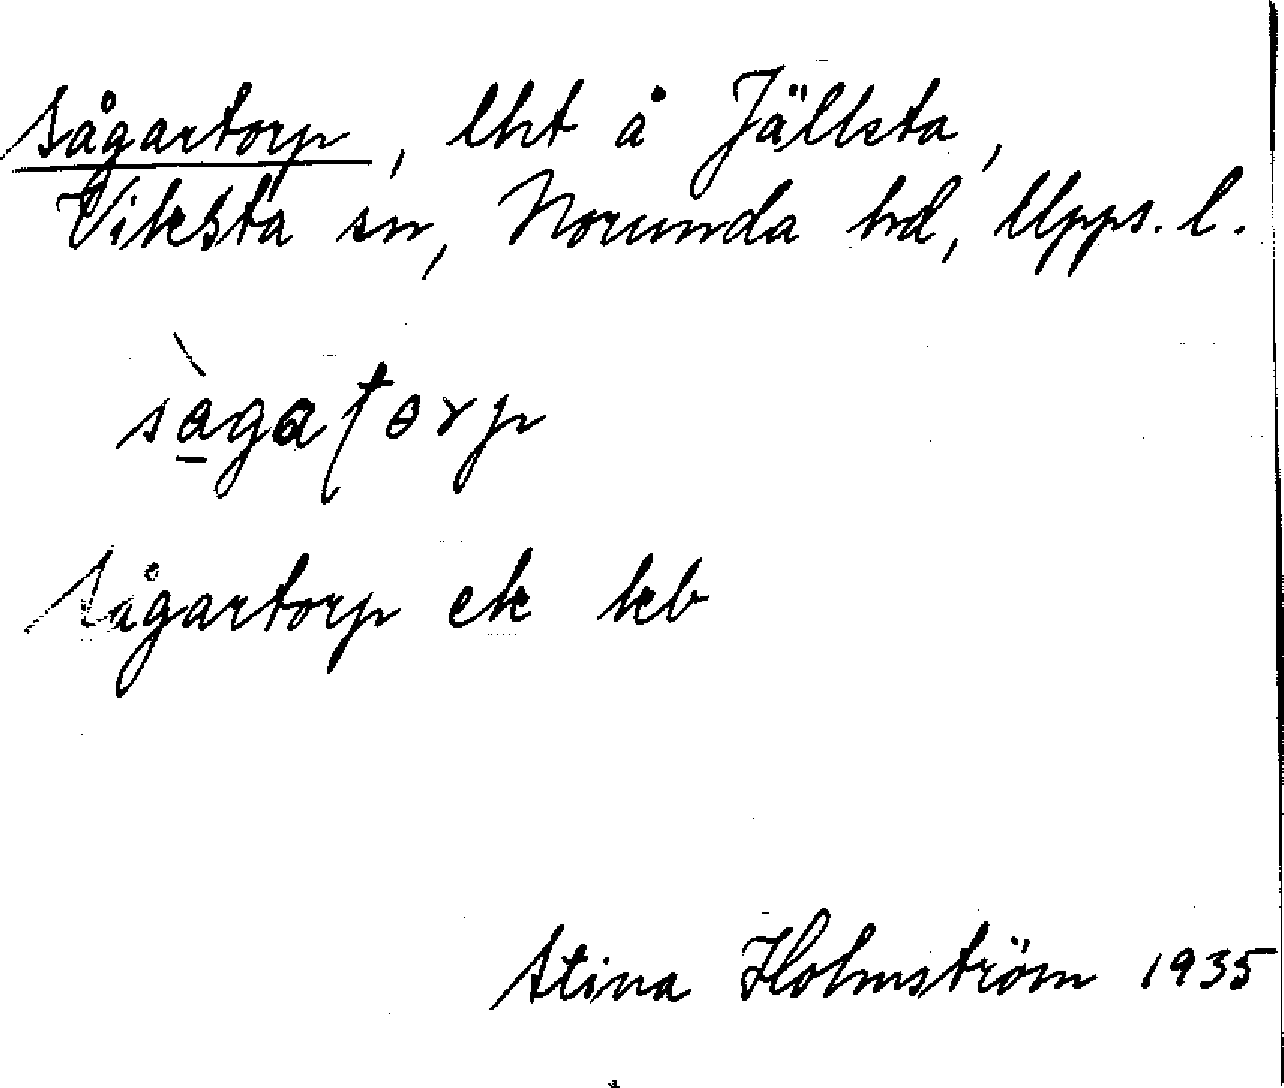 Sågartorp, lht å Jällsta,
Viksta sn, Norunda hd, Upps. l.
sàgaꞇorp
Sågartorp ek kb
Stina Holmström 1935